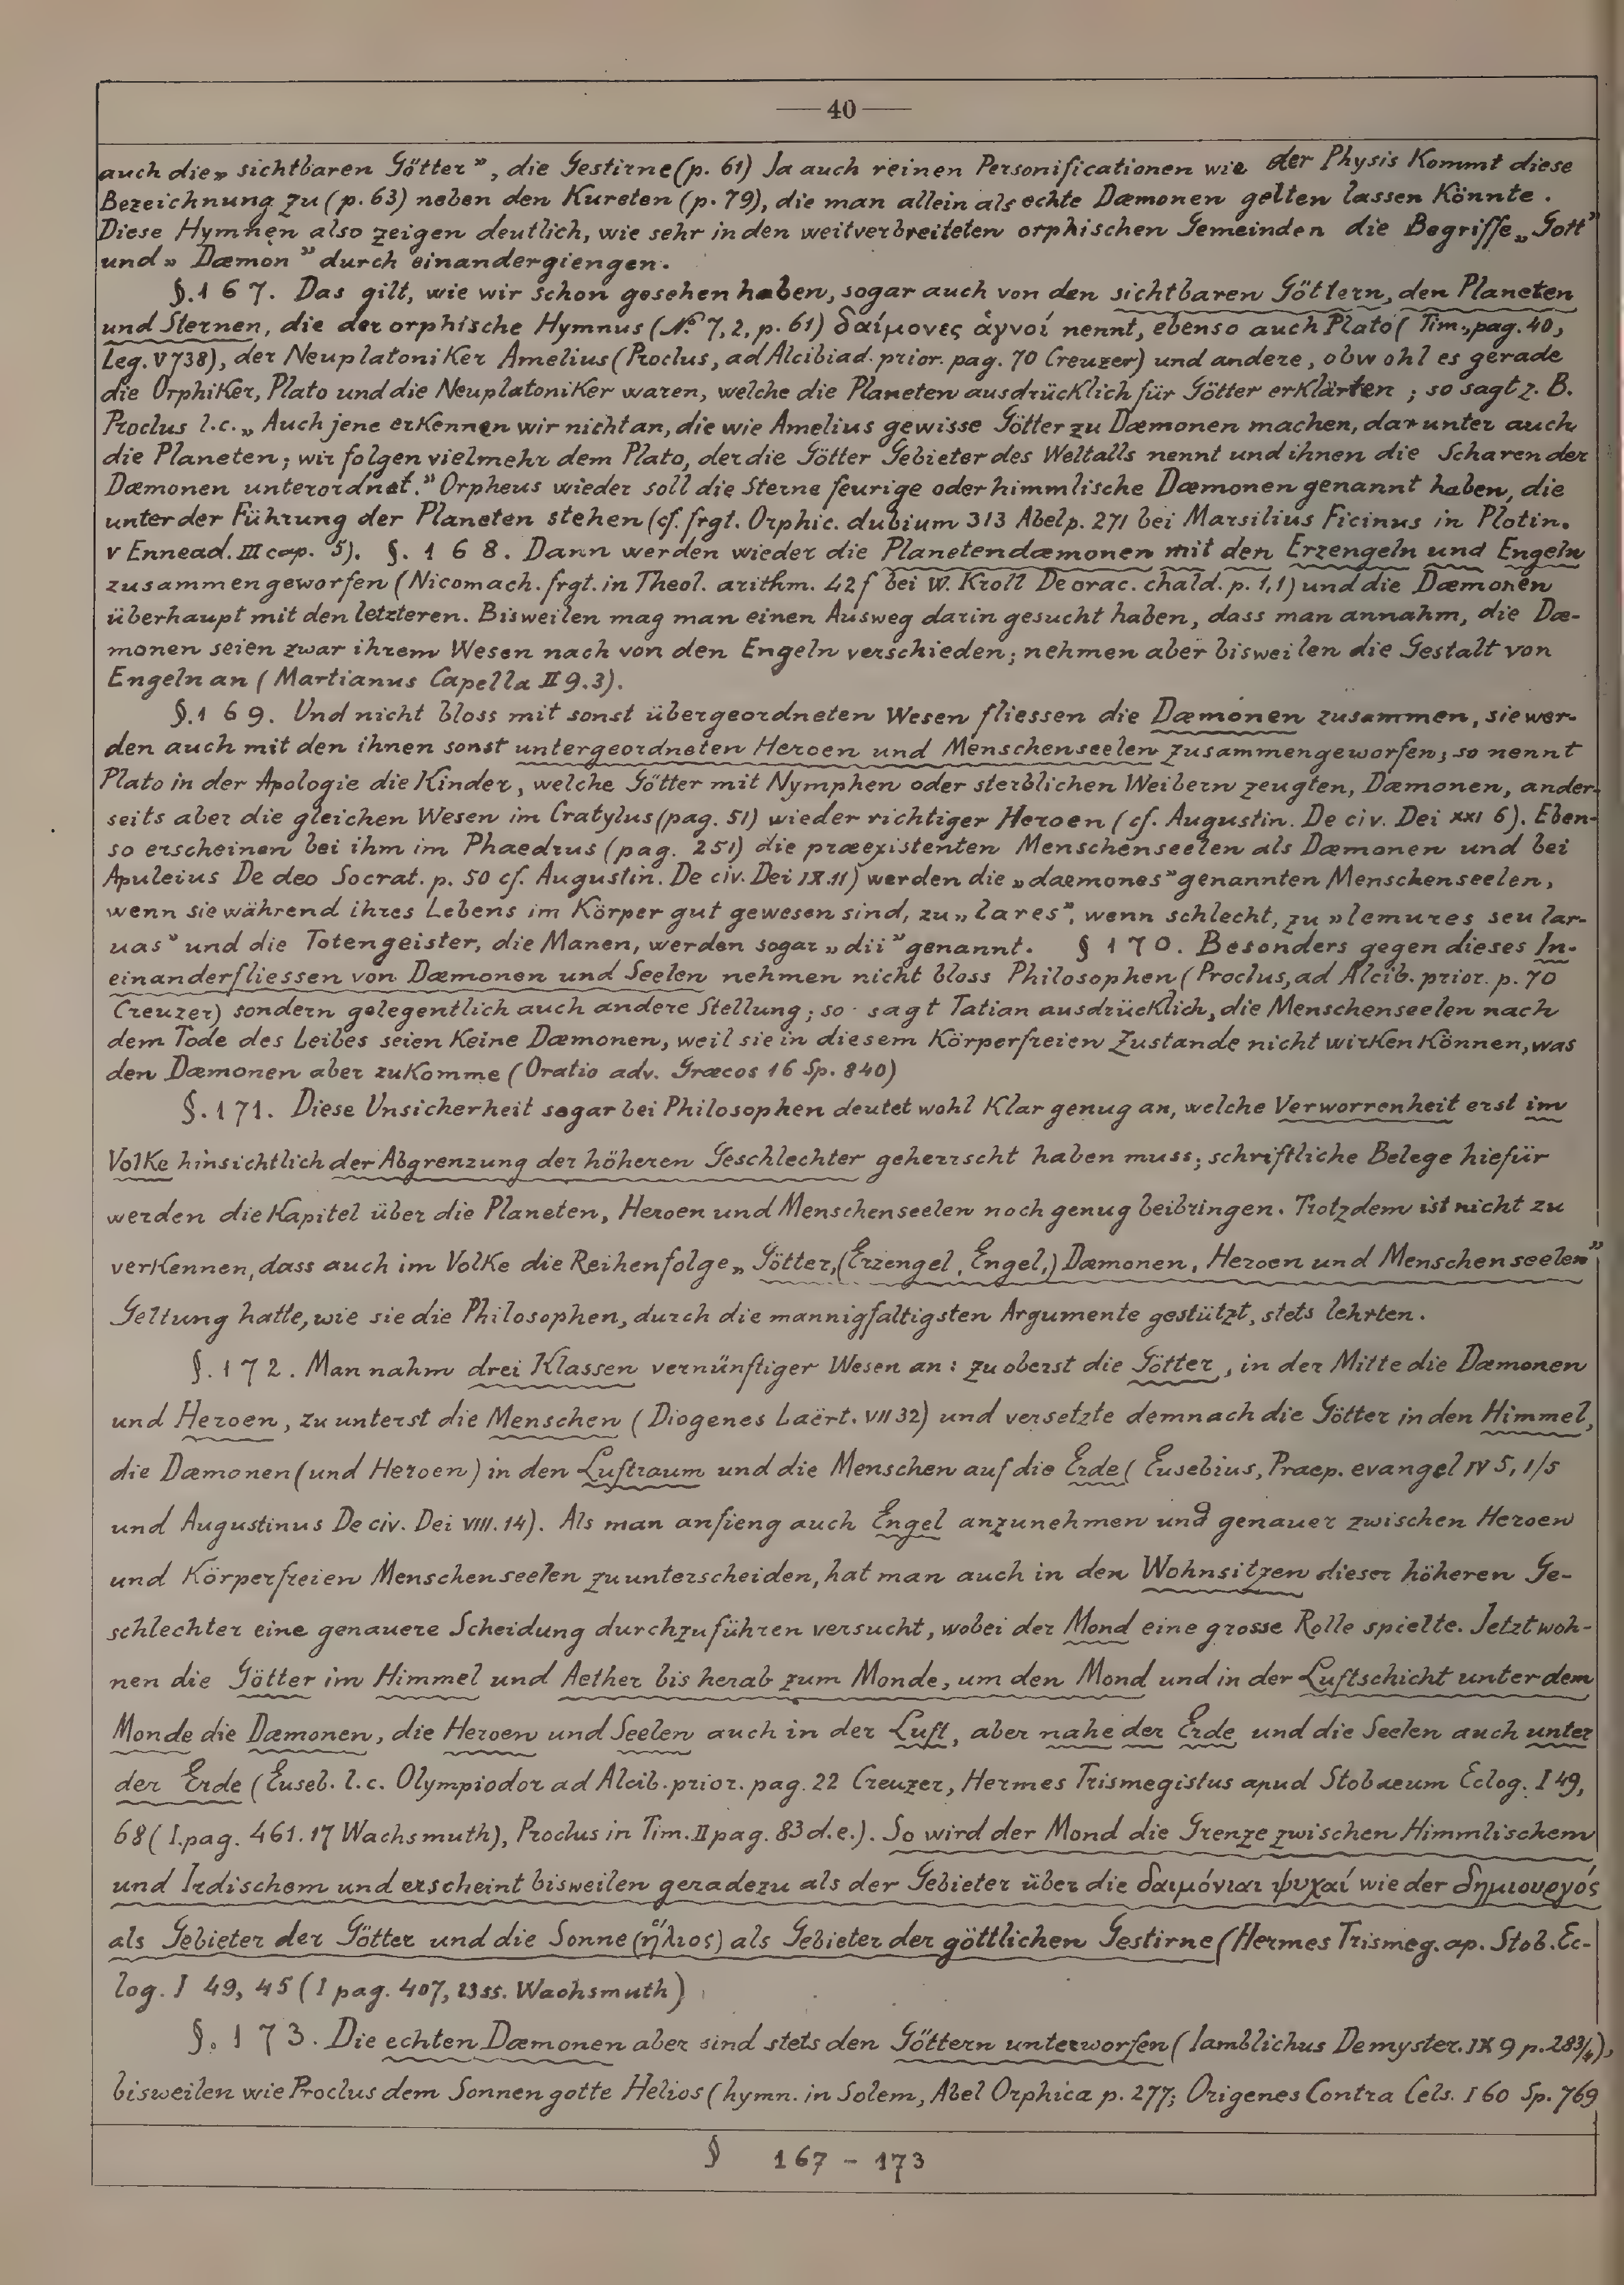 — 40 —
auch die „sichtbaren Götter”, die Gestirne (p. 61) Ja auch reinen Personificationen wie der Physis kommt diese
Bezeichnung zu (p. 63) neben den Kureten (p. 79), die man allein als echte Dæmonen gelten lassen könnte.
Diese Hymnen also zeigen deutlich, wie sehr in den weitverbreiteten orphischen Gemeinden die Begriffe „Gott”
und „Dæmon” durch einandergiengen.
§. 167. Das gilt, wie wir schon gesehen haben, sogar auch von den sichtbaren Göttern, den Planeten
und Sternen, die der orphische Hymnus (No 7,2, p. 61) δαίμονες ἁγνοί nennt, ebenso auch Plato (Tim., pag. 40,
Leg. V 738), der Neuplatoniker Amelius (Proclus, ad Alcibiad. prior. pag. 70 Creuzer) und andere, obwohl es gerade
die Orphiker, Plato und die Neuplatoniker waren, welche die Planeten ausdrücklich für Götter erklärten; so sagt z. B.
Proclus l.c. „Auch jene erkennen wir nicht an, die wie Amelius gewisse Götter zu Dæmonen machen, darunter auch
die Planeten; wir folgen vielmehr dem Plato, der die Götter Gebieter des Weltalls nennt und ihnen die Scharen der
Dæmonen unterordnet.” Orpheus wieder soll die Sterne feurige oder himmlische Dæmonen genannt haben, die
unter der Führung der Planeten stehen (cf. frgt. Orphic. dubium 313 Abel p. 271 bei Marsilius Ficinus in Plotin.
V Ennead. III cap. 5). §. 168. Dann werden wieder die Planetendæmonen mit den Erzengeln und Engeln
zusammengeworfen (Nicomach. frgt. in Theol. arithm. 42 f bei W. Kroll De orac. chald. p. 1,1) und die Dæmonen
überhaupt mit den letzteren. Bisweilen mag man einen Ausweg darin gesucht haben, dass man annahm, die Dæ-
monen seien zwar ihrem Wesen nach von den Engeln verschieden; nehmen aber bisweilen die Gestalt von
Engeln an (Martianus Capella II 9.3).
§. 169. Und nicht bloss mit sonst übergeordneten Wesen fliessen die Dæmonen zusammen, sie wer-
den auch mit den ihnen sonst untergeordneten Heroen und Menschenseelen zusammengeworfen; so nennt
Plato in der Apologie die Kinder, welche Götter mit Nymphen oder sterblichen Weibern zeugten, Dæmonen, ander-
seits aber die gleichen Wesen im Cratylus (pag. 51) wieder richtiger Heroen (cf. Augustin. De civ. Dei XXI 6). Eben-
so erscheinen bei ihm im Phaedrus (pag. 251) die præexistenten Menschenseelen als Dæmonen und bei
Apuleius De deo Socrat. p. 50 cf. Augustin. De civ. Dei IX. 11) werden die „daemones” genannten Menschenseelen,
wenn sie während ihres Lebens im Körper gut gewesen sind, zu „lares”, wenn schlecht, zu „lemures seu lar-
uas” und die Totengeister, die Manen, werden sogar „dii” genannt. § 170. Besonders gegen dieses In-
einanderfliessen von Dæmonen und Seelen nehmen nicht bloss Philosophen (Proclus, ad Alcib. prior. p. 70
Creuzer) sondern gelegentlich auch andere Stellung; so sagt Tatian ausdrücklich, die Menschenseelen nach
dem Tode des Leibes seien keine Dæmonen, weil sie in diesem körperfreien Zustande nicht wirken können, was
den Dæmonen aber zukomme (Oratio adv. Græcos 16 Sp. 840)
§. 171. Diese Unsicherheit sogar bei Philosophen deutet wohl klar genug an, welche Verworrenheit erst im
Volke hinsichtlich der Abgrenzung der höheren Geschlechter geherrscht haben muss; schriftliche Belege hiefür
werden die Kapitel über die Planeten, Heroen und Menschenseelen noch genug beibringen. Trotzdem ist nicht zu
verkennen, dass auch im Volke die Reihenfolge „Götter, (Erzengel, Engel,) Dæmonen, Heroen und Menschenseelen”
Geltung hatte, wie sie die Philosophen, durch die mannigfaltigsten Argumente gestützt, stets lehrten.
§. 172. Man nahm drei Klassen vernünftiger Wesen an: zu oberst die Götter, in der Mitte die Dæmonen
und Heroen, zu unterst die Menschen (Diogenes Laërt. VII 32) und versetzte demnach die Götter in den Himmel,
die Dæmonen (und Heroen) in den Luftraum und die Menschen auf die Erde (Eusebius, Praep. evangel IV 5, 1/5
und Augustinus De civ. Dei VIII. 14). Als man anfieng auch Engel anzunehmen und genauer zwischen Heroen
und körperfreien Menschenseelen zu unterscheiden, hat man auch in den Wohnsitzen dieser höheren Ge-
schlechter eine genauere Scheidung durchzuführen versucht, wobei der Mond eine grosse Rolle spielte. Jetzt woh-
nen die Götter im Himmel und Aether bis herab zum Monde, um den Mond und in der Luftschicht unter dem
Monde die Dæmonen, die Heroen und Seelen auch in der Luft, aber nahe der Erde und die Seelen auch unter
der Erde (Euseb. l. c. Olympiodor ad Alcib. prior. pag. 22 Creuzer, Hermes Trismegistus apud Stobaeum Eclog. I 49,
68 (I. pag. 461. 17 Wachsmuth), Proclus in Tim. II pag. 83 d. e.). So wird der Mond die Grenze zwischen Himmlischem
und Irdischem und erscheint bisweilen geradezu als der Gebieter über die δαιμόνιαι ψυχαί wie der δημιουργός
als Gebieter der Götter und die Sonne (ἥλιος) als Gebieter der göttlichen Gestirne (Hermes Trismeg. ap. Stob. Ec-
log. I 49, 45 (I pag. 407, 23 ss. Wachsmuth)
§. 173. Die echten Dæmonen aber sind stets den Göttern unterworfen (Iamblichus De myster. IX 9 p. 283/4),
bisweilen wie Proclus dem Sonnengotte Helios (hymn. in Solem, Abel Orphica p. 277; Origenes Contra Cels. I 60 Sp. 769
§ 167 - 173